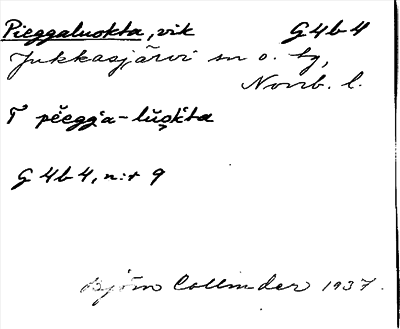 Pieggaluokta, vik G4b4
Jukkasjärvi sn o. tg,
Norrb. l.
T pĕegg̀a-lŭo̭kta
G 4b 4, n:r 9
Björn Collinder 1937.